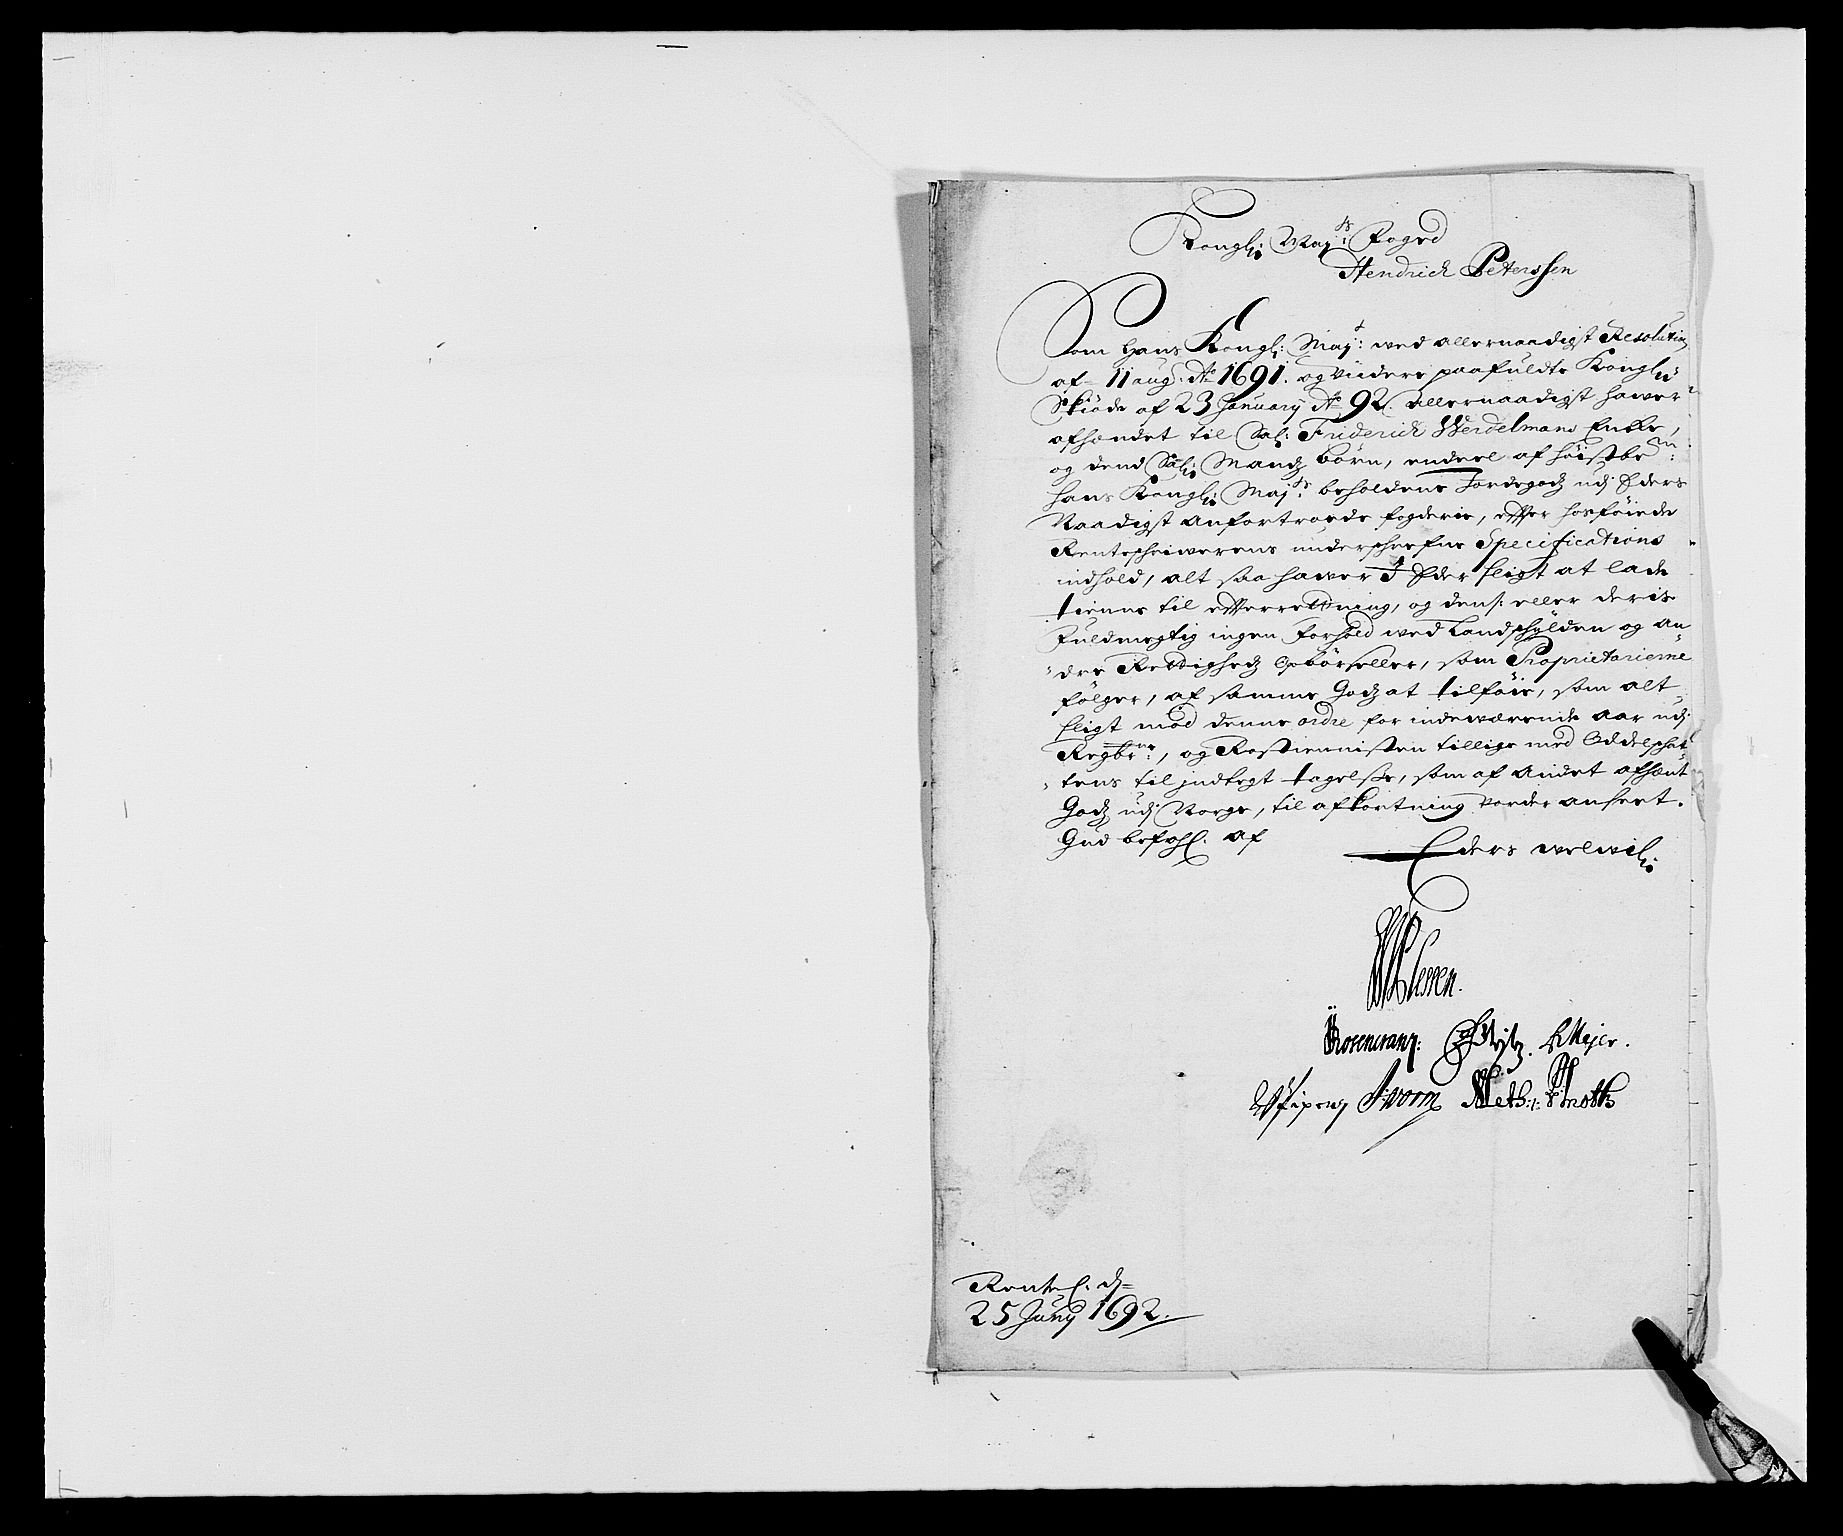 Kongl: Maj:ts Foged
Hendrich Peterssen
Som Hans Kongl: Maj:t ved allernaadigst Resolution
af 11 aug: Ao 1691. og videre paafuldte Kongl:
Skiøde af 23 January Ao 92. allernaadigst hafver
afhændet til Sal: Friderich Werdelmans Enke,
og dend Sal: Mandz børn, endeel af høistbem:te
hans Kongl: Maj:ts beholdene Jordegodz udj Eders
Naadigst anfortroede fogderie, efter hosføiede
Renteschriverens underschrefne Specifications
indhold, alt saa hafver I Eder sligt at lade
tiene til efterretning, og dens: eller deris
Fuldmegtig ingen forhold ved Landschylden og an-
-dre Rettighedz Opbørseller, som Proprietarierne
følger, af samme Godz at tilføie, som alt
sligt mod denne ordre for indeværende aar udj
Regb:ne, og Rostiennisten tillige med Oddelschat-
-tens til jndtegt tagelse, som af andet afhænt
Godz udj Norge, til afkortning vorder anført.
Gud befahl: af
Eders velvil:
Plessen.
Rosencrantz: Stytz. Meyer.
Worm Meth: P Moth
Rente C. d=
25 Juny 1692.